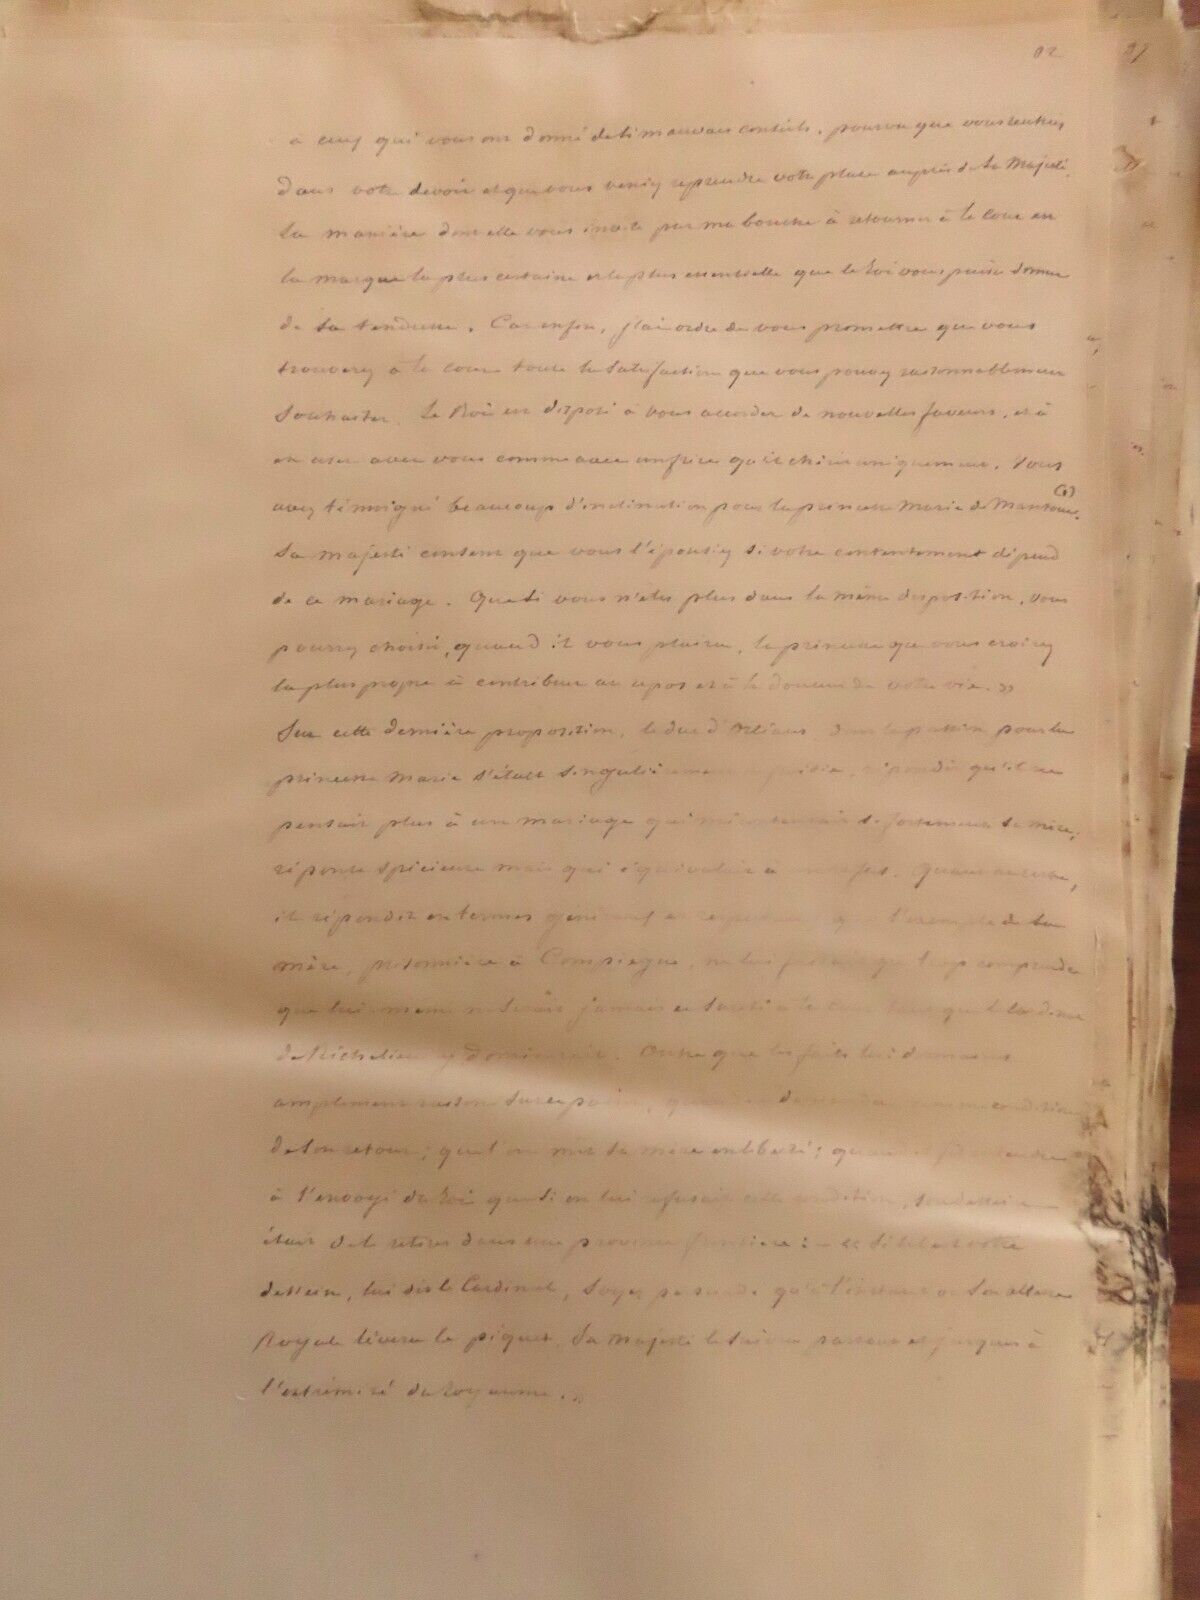 82 97
à ceux qui vous ont donné de si mauvais conseils, pourvu que vous rentriez
dans votre devoir et que vous veniez reprendre votre place auprès de Sa Majesté.
La manière dont elle vous invite par ma bouche à retourner à la cour est
la marque la plus certaine et la plus essentielle que le Roi vous puisse donner
de sa tendresse. Car enfin, j'ai ordre de vous promettre que vous
trouverez à la cour toute la satisfaction que vous pouvez raisonnablement
souhaiter. Le Roi est disposé à vous accorder de nouvelles faveurs, et à
en user avec vous comme avec un frère qu'il chérit uniquement. Vous
avez témoigné beaucoup d'inclination pour la princesse Marie de Mantoue (1).
Sa majesté consent que vous l'épousiez si votre contentement dépend
de ce mariage. Que si vous n'êtes plus dans la même disposition, vous
pourrez choisir, quand il vous plaira, la princesse que vous croirez
la plus propre à contribuer au repos et à la douceur de votre vie. »
Sur cette dernière proposition, le duc d'Orléans dont la passion pour la
princesse Marie s'était singulièrement répondit qu'il ne
pensait plus à un mariage qui mécontentait si fortement sa mère,
réponse spécieuse mais qui équivalait à un refus. Quant au reste,
il répondit en termes généraux et respectueux que l'exemple de sa
mère, prisonnière à Compiègne, ne lui faisait que trop comprendre
que lui-même ne serait jamais en sureté à la cour tant que le Cardinal
de Richelieu y dominerait. Outre que les faits lui donnaient
amplement raison sur ce point, demander comme condition
de son retour, que l'on mit sa mère en liberté;
à l'envoyé du Roi que si on lui refusait cette condition, son dessein
était de se retirer dans une province frontière : — « Si tel est votre
dessein, lui dit le Cardinal, soyez persuadé qu'à l'instant où Son Altesse
Royale lèvera le piquet, Sa Majesté la suivra partout et jusques à
l'extrémité du Royaume. »